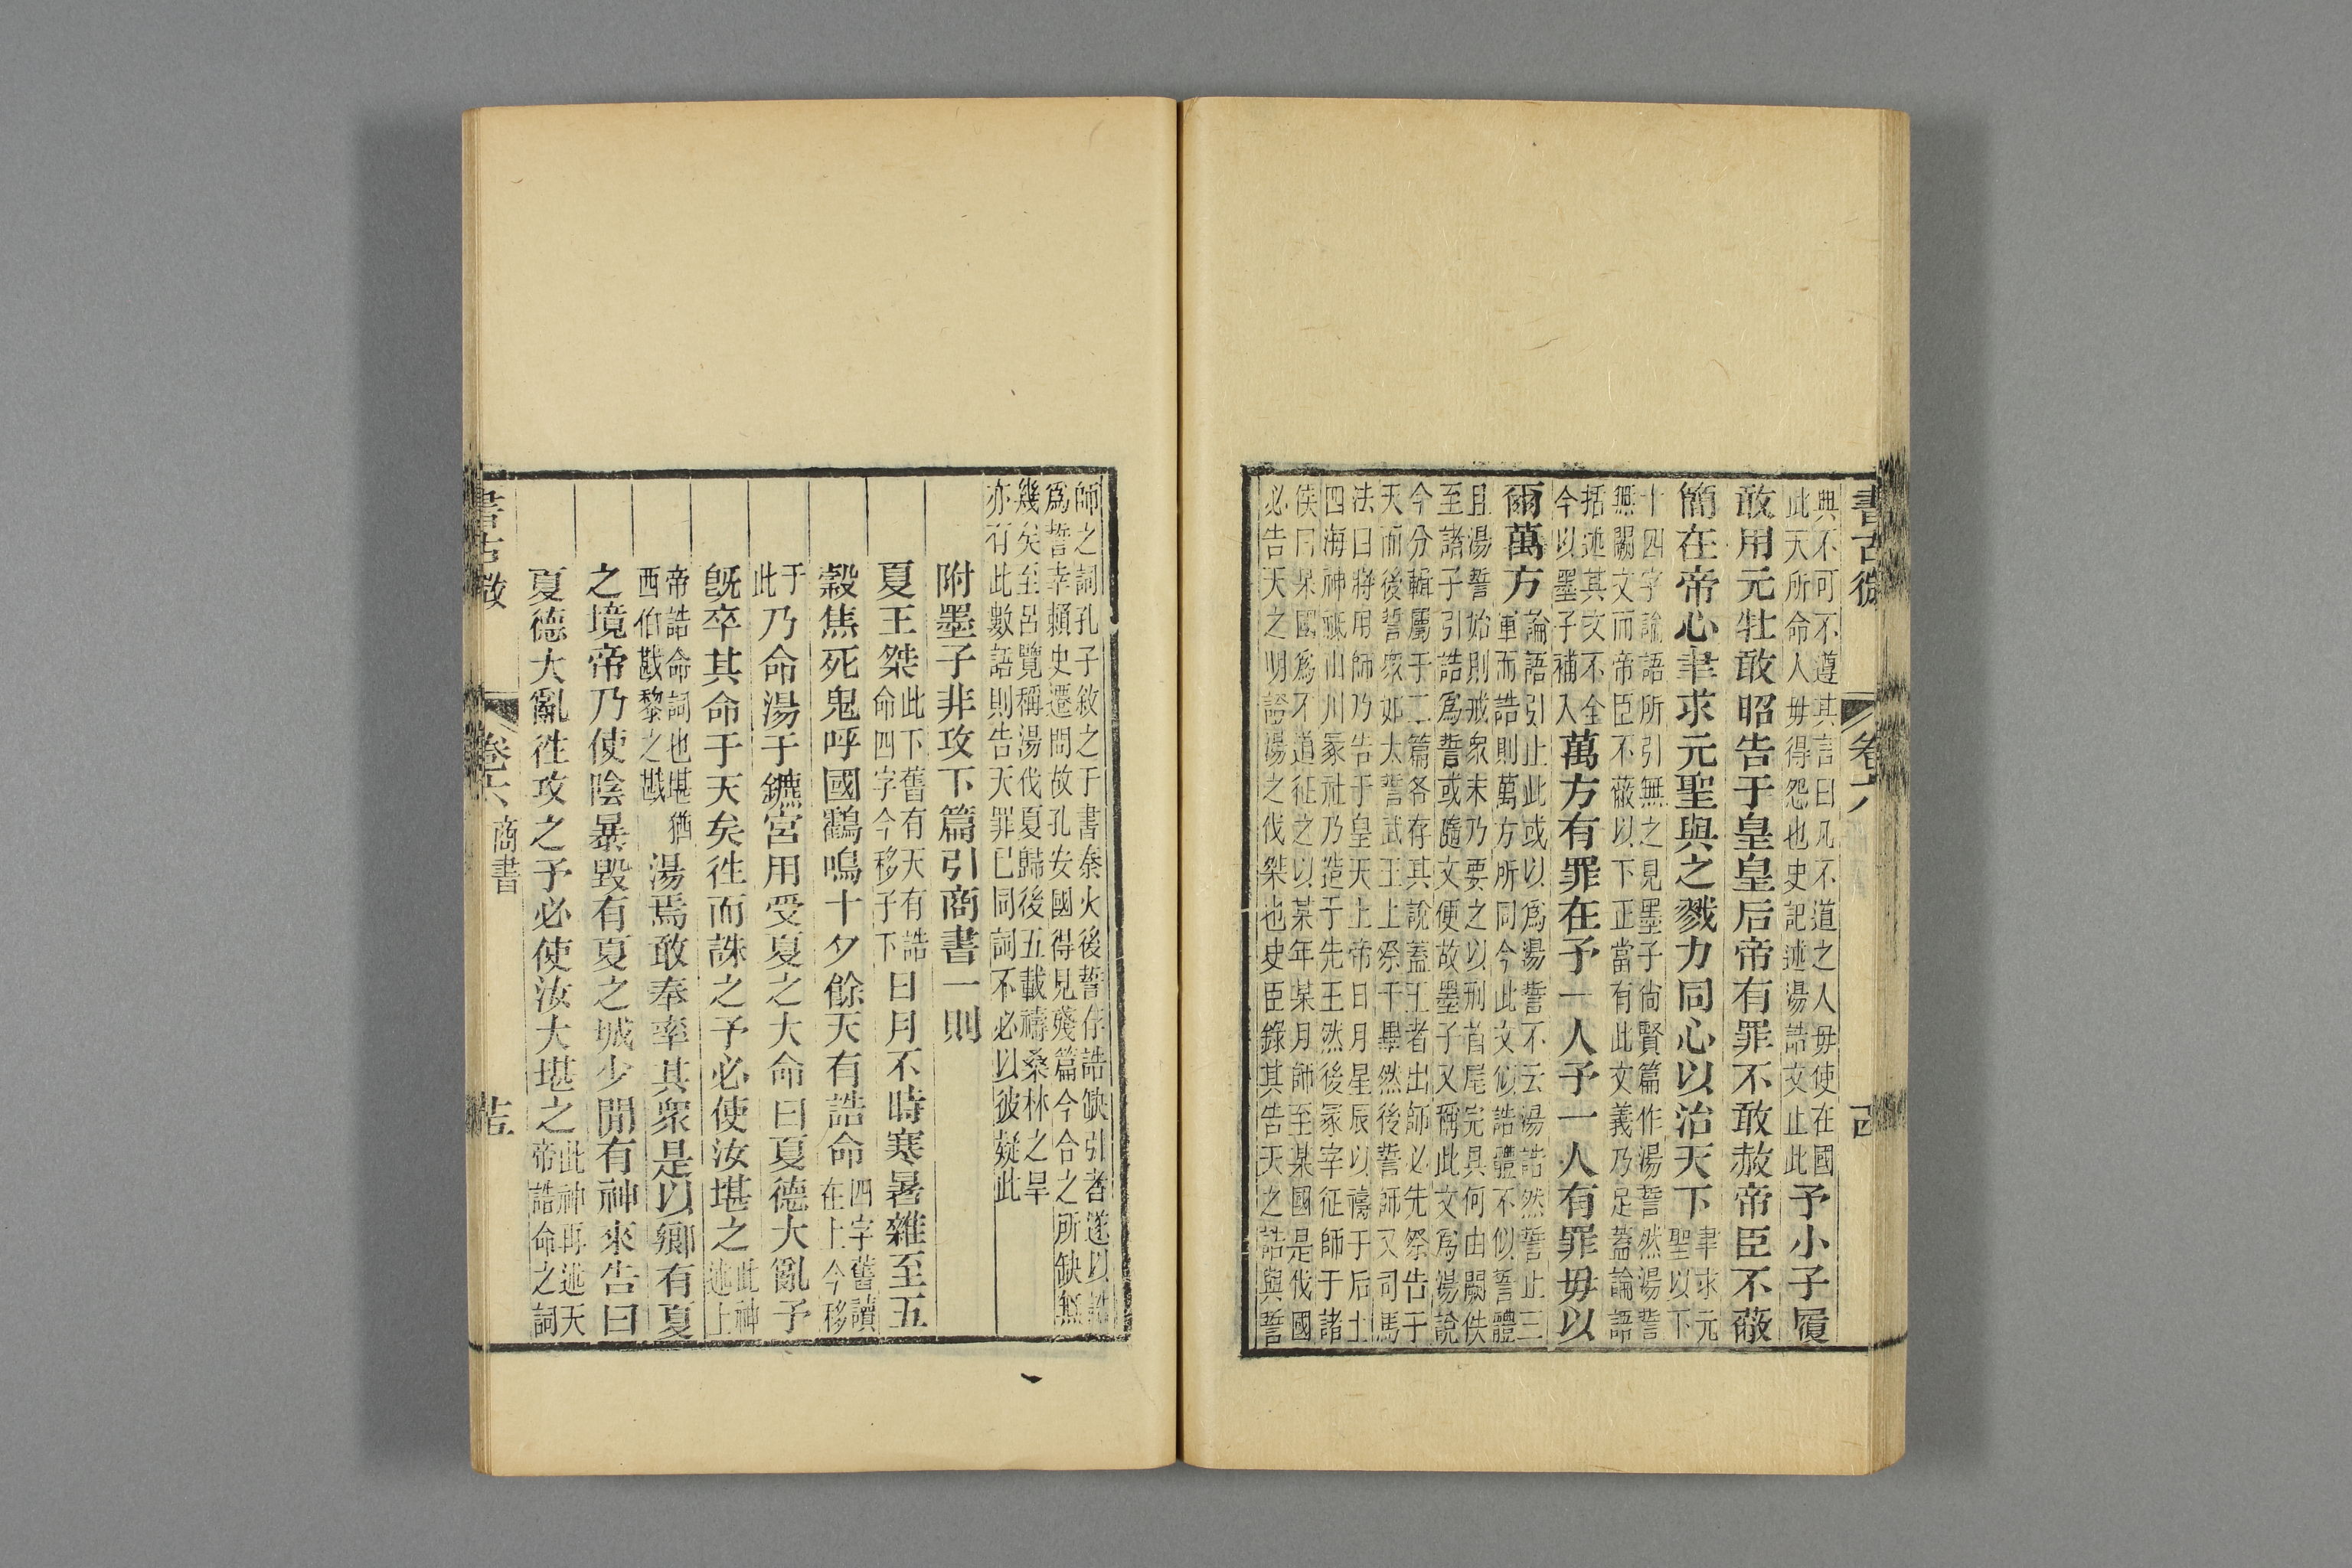 書古微
卷六
興不可不遵其言曰凡不道之人毋使在國
此天所命人毋得怨也史記述湯誥文止此
予小子履
敢用元牡敢昭告于皇皇后帝有罪不敢赦帝臣不蔽
簡在帝心聿求元聖與之戮力同心以治天下
聿求元
聖以下
十四字論語所引無之見墨子尙賢篇作湯誓然湯誓
無闕文而帝臣不蔽以下正當有此文義乃足蓋論語
括述其文不全
今以墨子補入
萬方有罪在予一人予一人有罪毋以
爾萬方
論語引止此或以爲湯誓不云湯誥然誓止三
軍而誥則萬方所同今此文似誥體不似誓體
且湯誓始則戒衆末乃要之以刑首尾完具何由闕佚
至諸子引誥爲誓或隨文便故墨子又稱此文爲湯說
今分輯屬于二篇各存其說蓋王者出師必先祭告于
天而後誓衆如大誓武王上祭于畢然後誓師又司馬
法曰將用師乃告于皇天上帝日月星辰以禱于后土
四海神祇山川冢社乃造于先王然後冢宰征師于諸
侯曰某國爲不道征之以某年某月師至某國是伐國
必告天之明證湯之伐桀也史臣錄其告天之誥與誓
師之詞孔子敘之于書秦火後誓存誥缺引者遂以誥
爲誓幸賴史遷問故孔安國得見殘篇今合之所缺無
幾矣至呂覽稱湯伐夏歸後五載禱桑林之旱
亦有此數語則告天罪已同詞不必以彼疑此
附墨子非攻下篇引商書一則
夏王桀
此下舊有天有誥
命四字今移子下
日月不時寒暑雜至五
穀焦死鬼呼國鸖鳴十夕餘天有誥命
四字舊讀
在上今移
于
此
乃命湯于鑣宮用受夏之大命曰夏德大亂予
旣卒其命于天矣徃而誅之予必使汝堪之
此神
述上
帝誥命詞也堪猶
西伯戡黎之戡
湯焉敢奉率其衆是以鄉有夏
之境帝乃使陰暴毀有夏之城少閒有神來告曰
夏德大亂徃攻之予必使汝大堪之
此神再述天
帝誥命之詞
書古微
卷六
商書